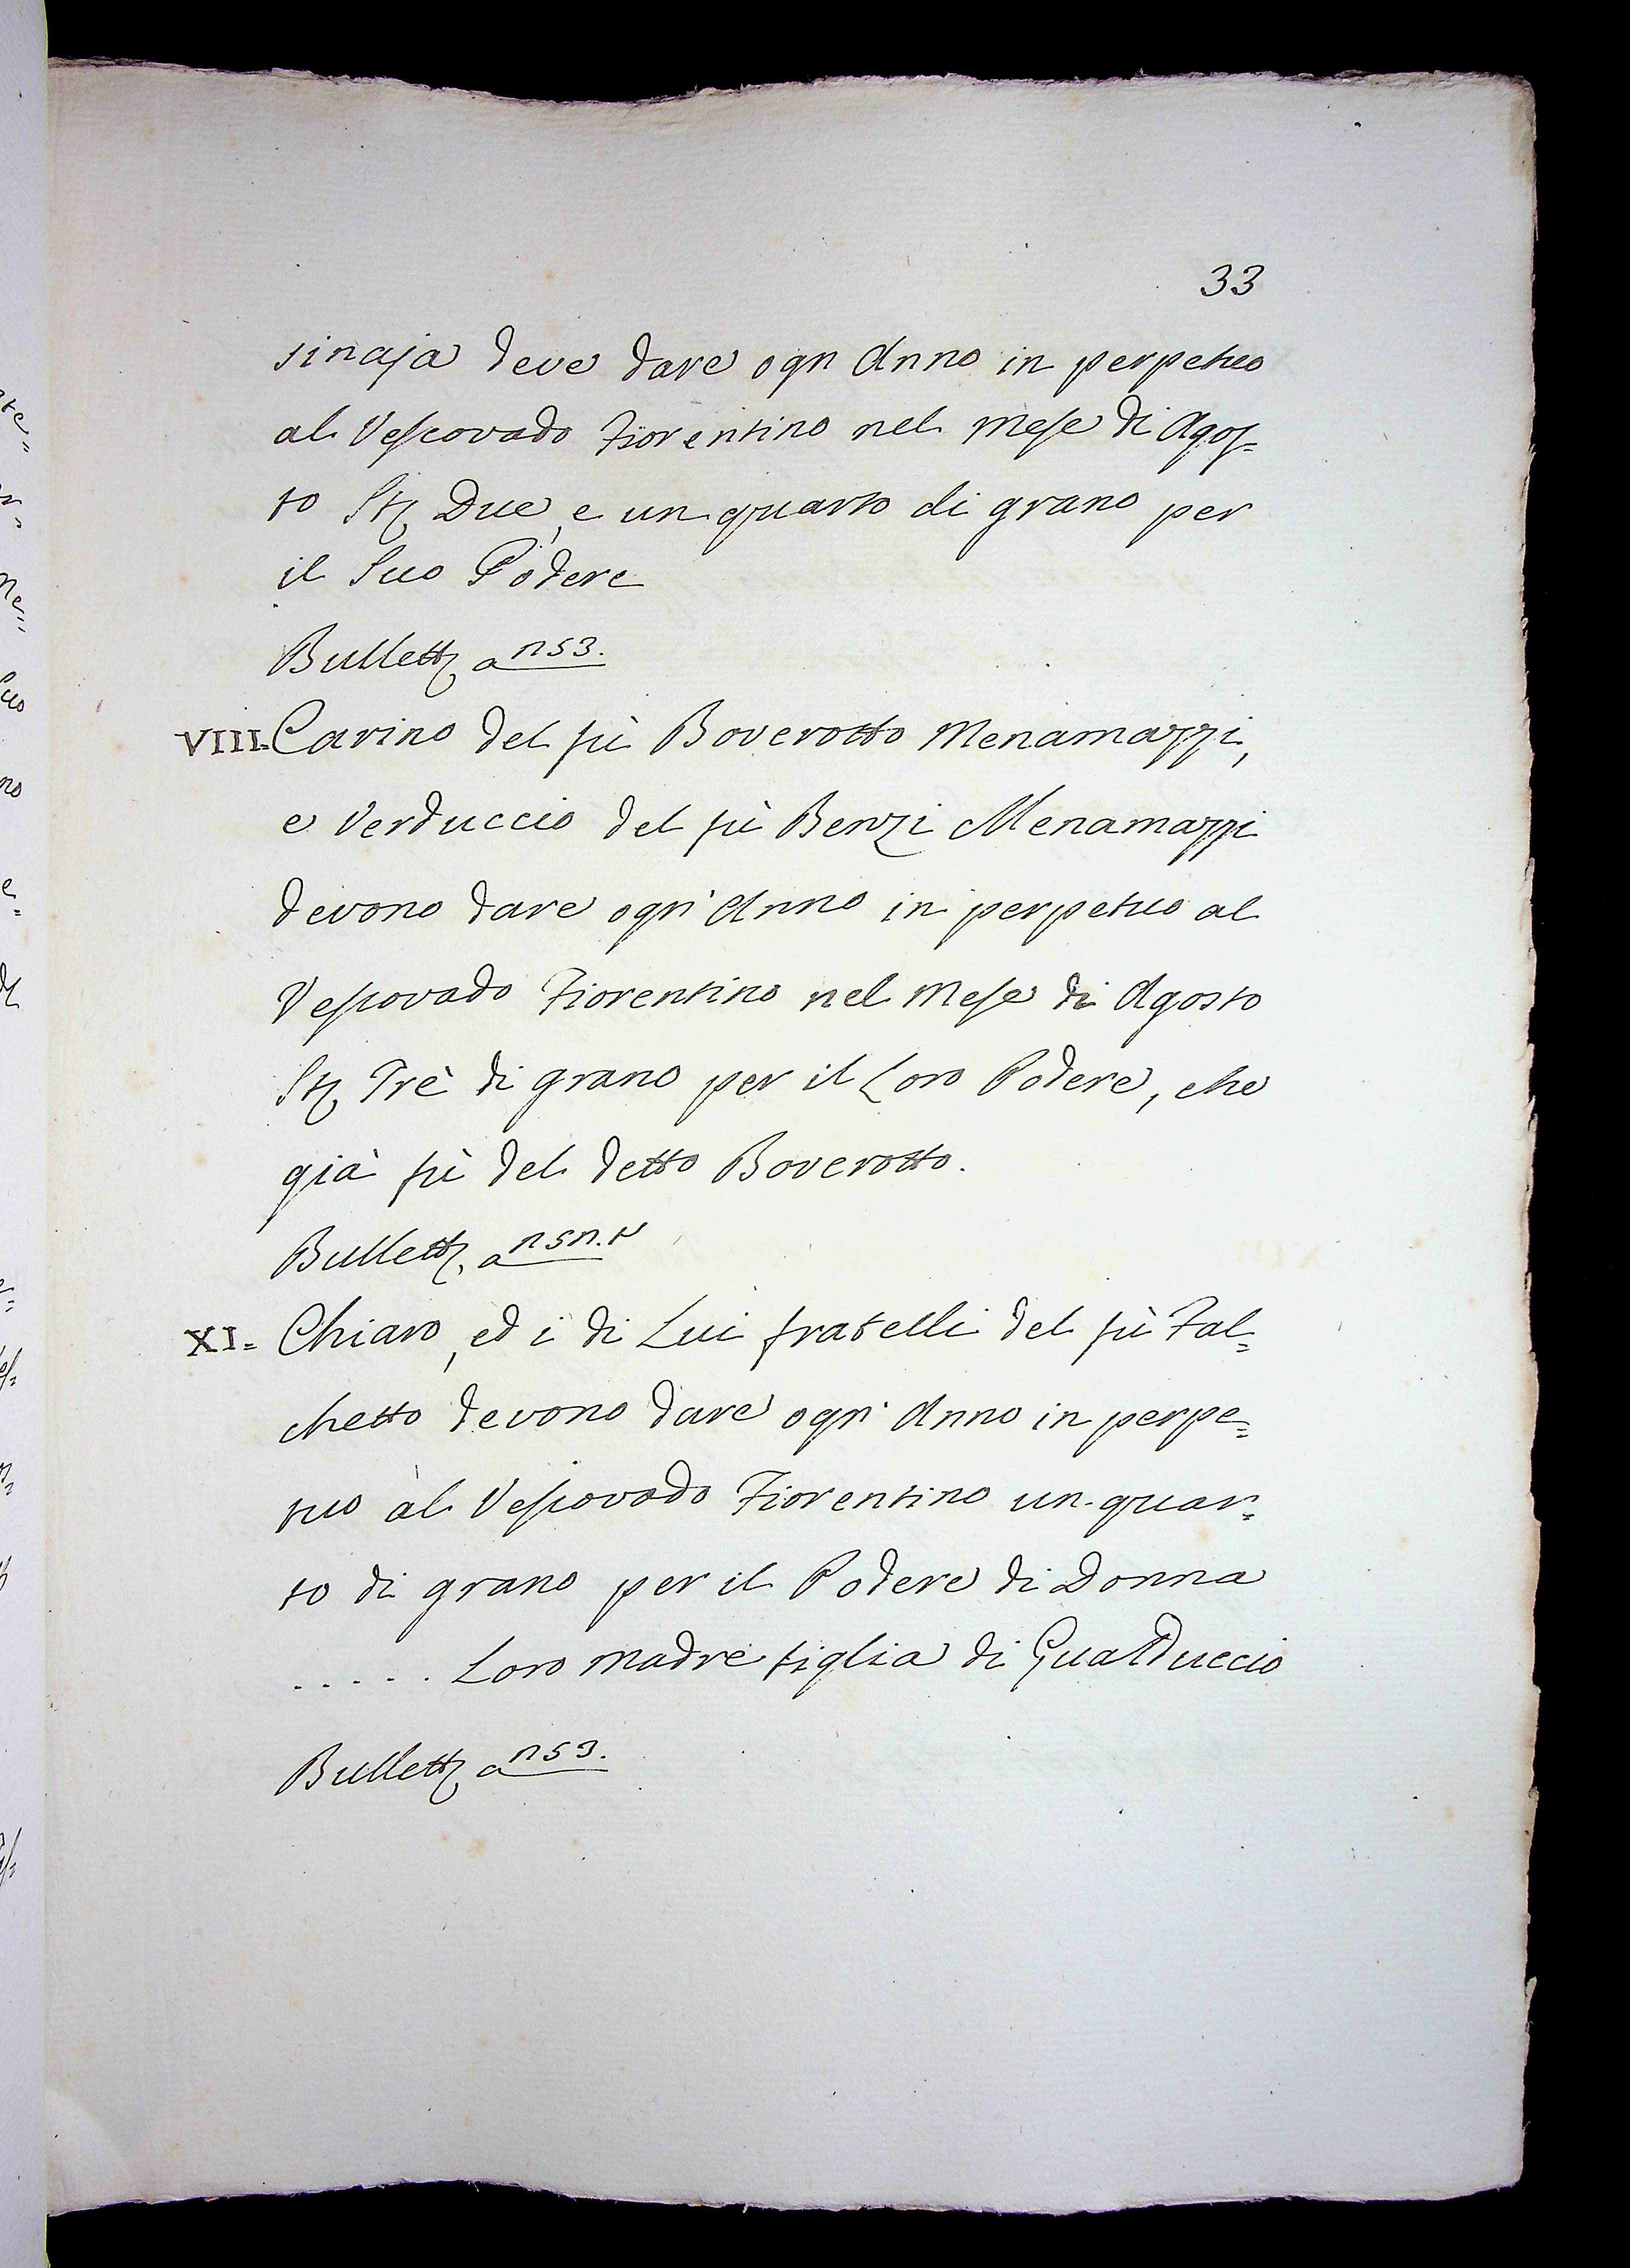 33
sinaja deve dare ogn Anno in perpetuo
al Vescovado Fiorentino nel Mese di Agos=
to Stҙ Due, e un quarto di grano per
il Suo Podere
Bullettҙ a n53.
VIII. Carino del fù Boverotto Menamazzi,
e Verduccio del fù Benzi Menamazzi
devono dare ogn'Anno in perpetuo al
Vescovado Fiorentino nel Mese di Agosto
Stҙ Trè di grano per il Loro Podere, che
già fù del detto Boverotto.
Bullettҙ, a
XI= Chiaro, ed i di Lui fratelli del fù Fal=
chetto devono dare ogn'Anno in perpe=
tuo al Vescovado Fiorentino un quar=
to di grano per il Podere di Donna
..... Loro Madre figlia di Gualduccio
Bullettҙ a n53.